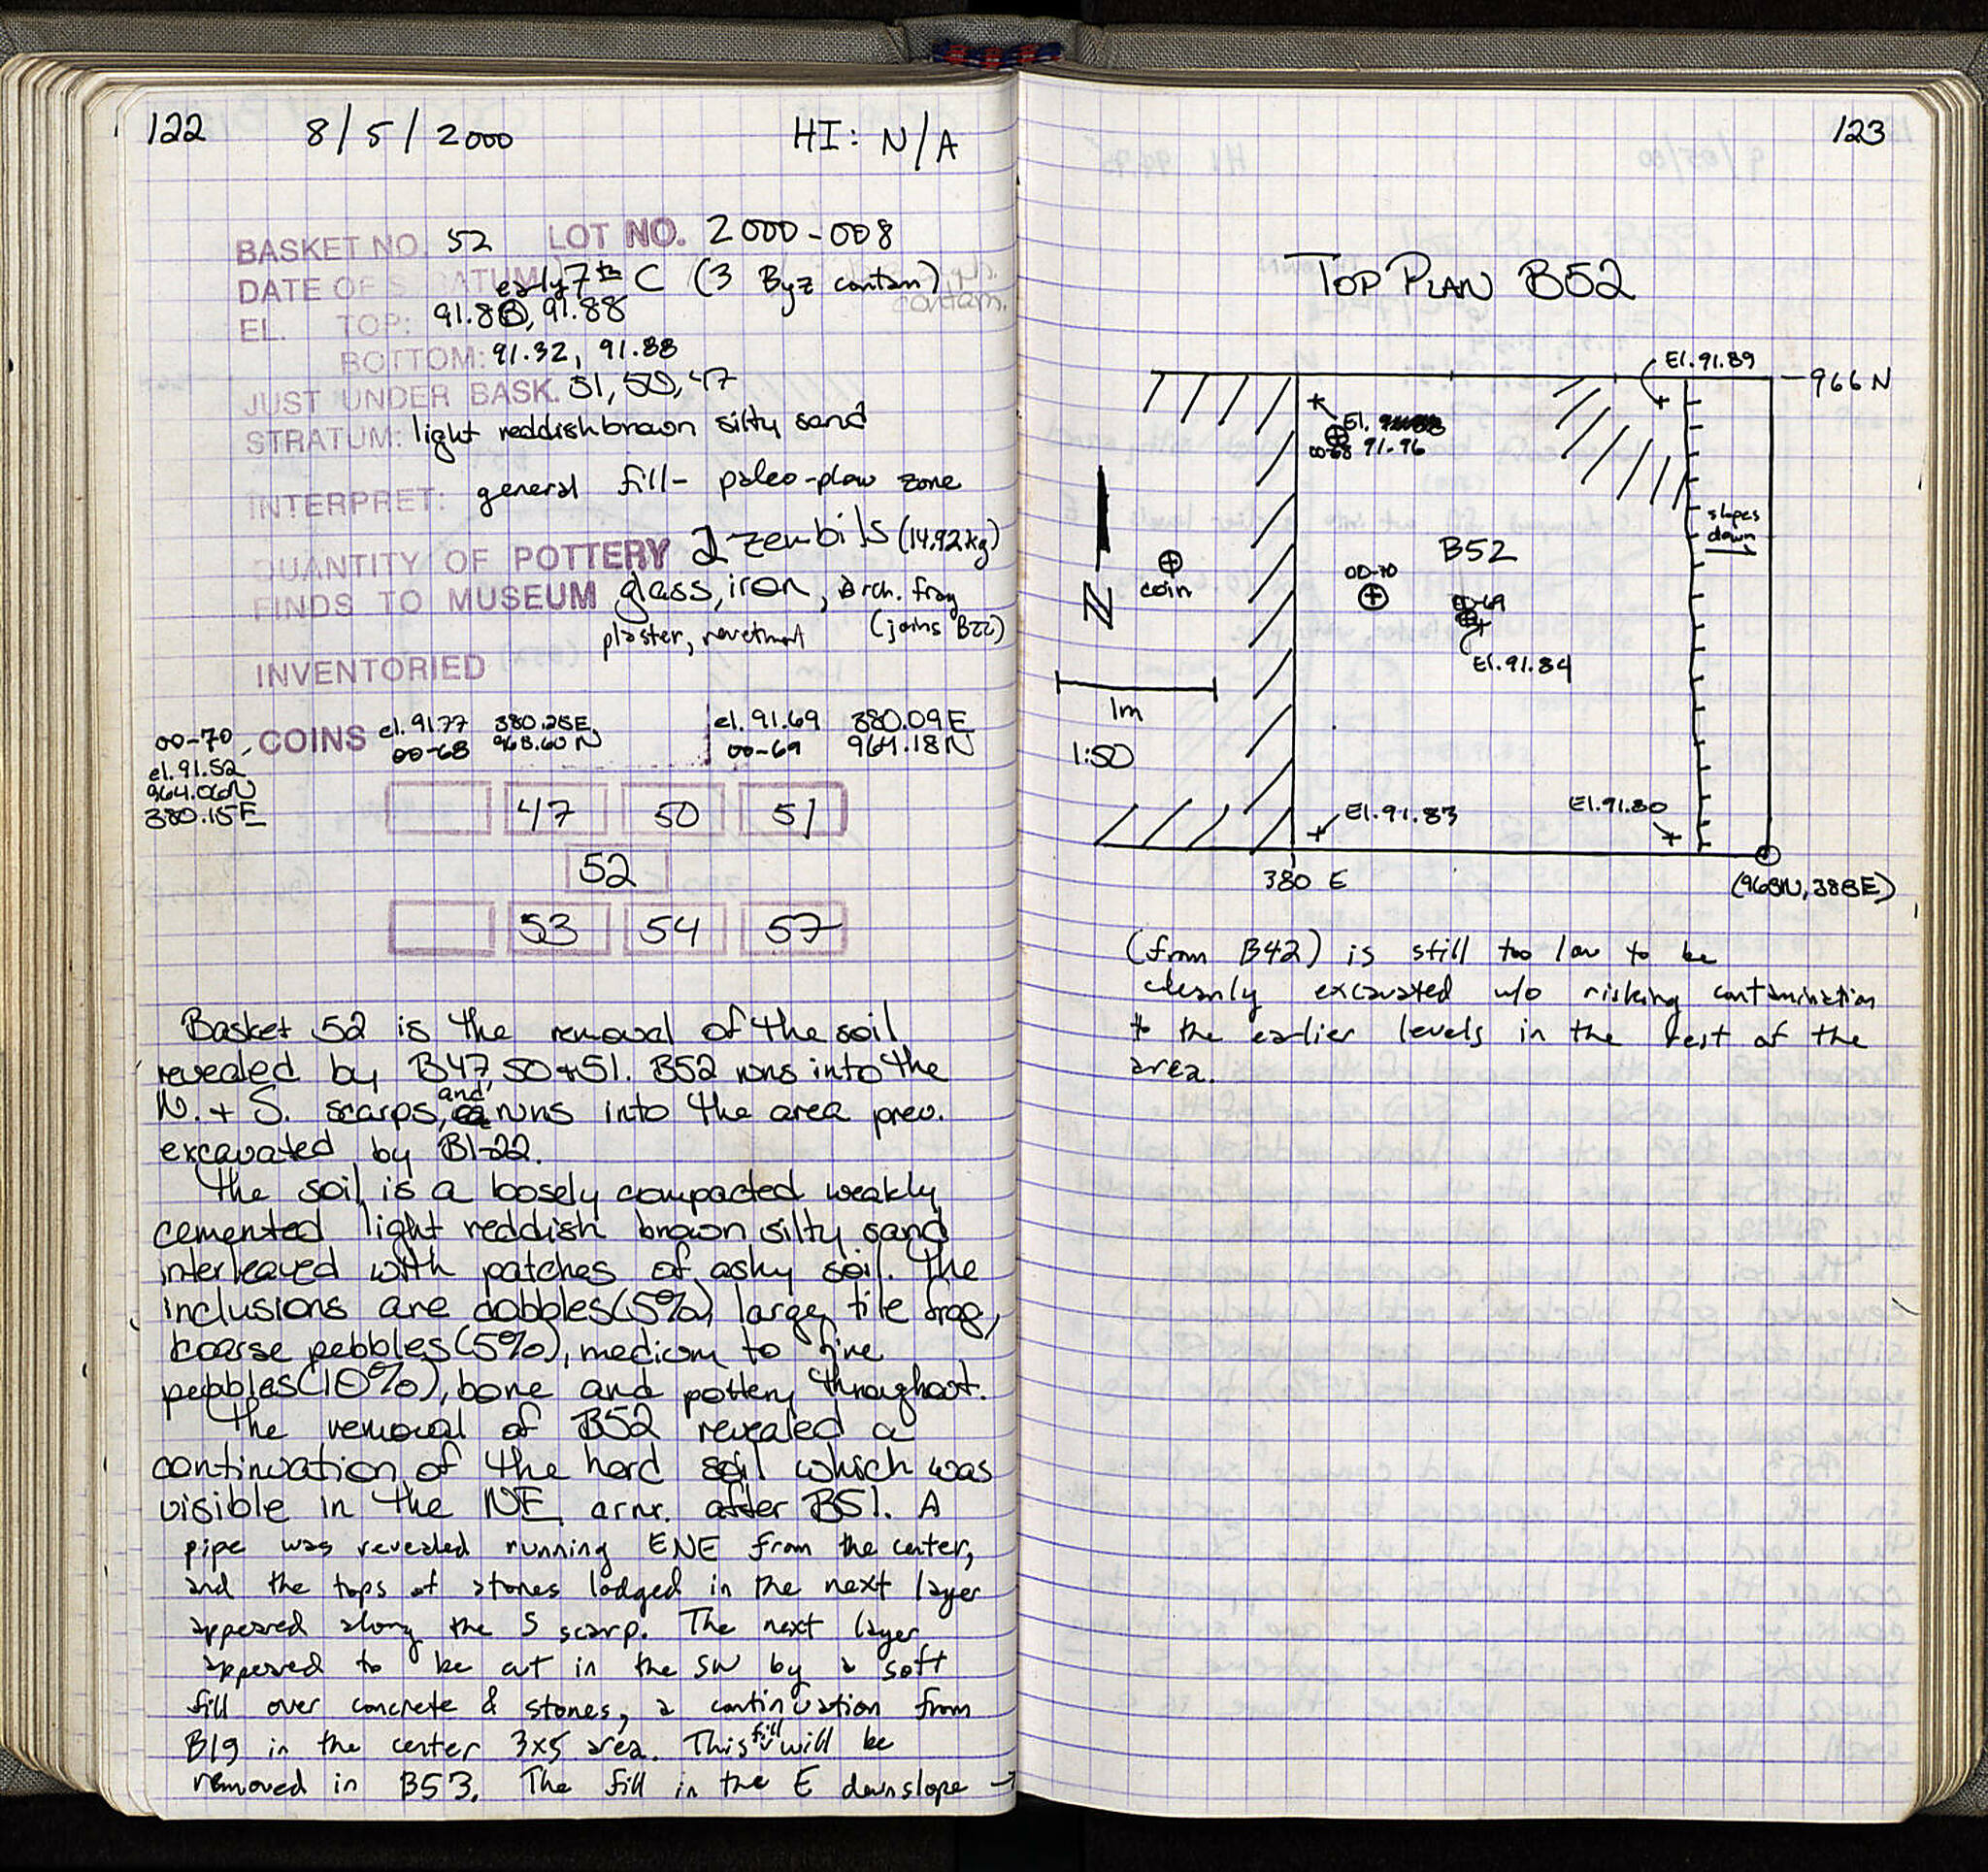 122 8/5/2000 HI: N/A
BASKET NO. 52 LOT NO. 2000-008
DATE OF STRATUM early 7th C (3 Byz contam)
contam.
EL. TOP: 91.83, 91.88
BOTTOM: 91.32, 91.88
JUST UNDER BASK. 51, 50, 47
STRATUM: light reddish brown silty sand
INTERPRET: general fill - paleo-plow zone
QUANTITY OF POTTERY 2 zembils (14.92kg)
FINDS TO MUSEUM glass, iron, arch. frag
plaster, revetment (joins B22)
INVENTORIED
00-70, COINS el. 91.77 380.25E, el. 91.69 380.09E
00-68 963.60N 00-69 964.18N
el. 91.52
964.06N
380.15E
47 50 51
52
53 54 57
Basket 52 is the removal of the soil
revealed by B47, 50 + 51. B52 runs into the
N. + S. scarps, and runs into the area prev.
excavated by B1-22.
The soil is a loosely compacted weakly
cemented light reddish brown silty sand
interleaved with patches of ashy soil. The
inclusions are cobbles (5%), large tile frag,
coarse pebbles (5%), medium to fine
pebbles (10%), bone and pottery throughout.
The removal of B52 revealed a
continuation of the hard soil which was
visible in the NE crnr. after B51. A
pipe was revealed running ENE from the center,
and the tops of stones lodged in the next layer
appeared along the S scarp. The next layer
appeared to be cut in the SW by a soft
fill over concrete & stones, a continuation from
B19 in the center 3x5 area. This fill will be
removed in B53. The fill in the E downslope →
123
TOP PLAN B52
El. 91.89
966 N
El.
91.96
00-68
slopes
down
B52
coin
00-70
00-69
N
El. 91.84
1m
1:50
El. 91.83
El. 91.80
380 E
(963N, 383E)
(from B42) is still too low to be
cleanly excavated w/o risking contamination
to the earlier levels in the rest of the
area.